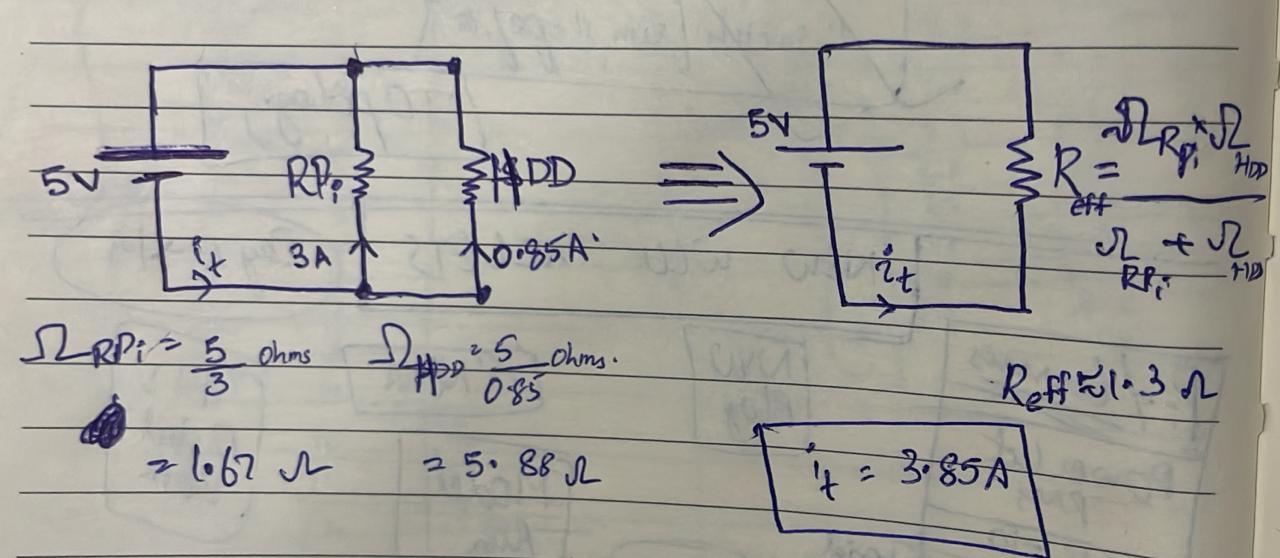 5V
RPi
HDD
it
3A
0.85A
5V
it
Reff = ΩRPi × ΩHDD
ΩRPi + ΩHDD
ΩRPi = 5/3 ohms
ΩHDD = 5/0.85 ohms.
= 1.67 Ω
= 5.88 Ω
Reff ≈ 1.3 Ω
it = 3.85A